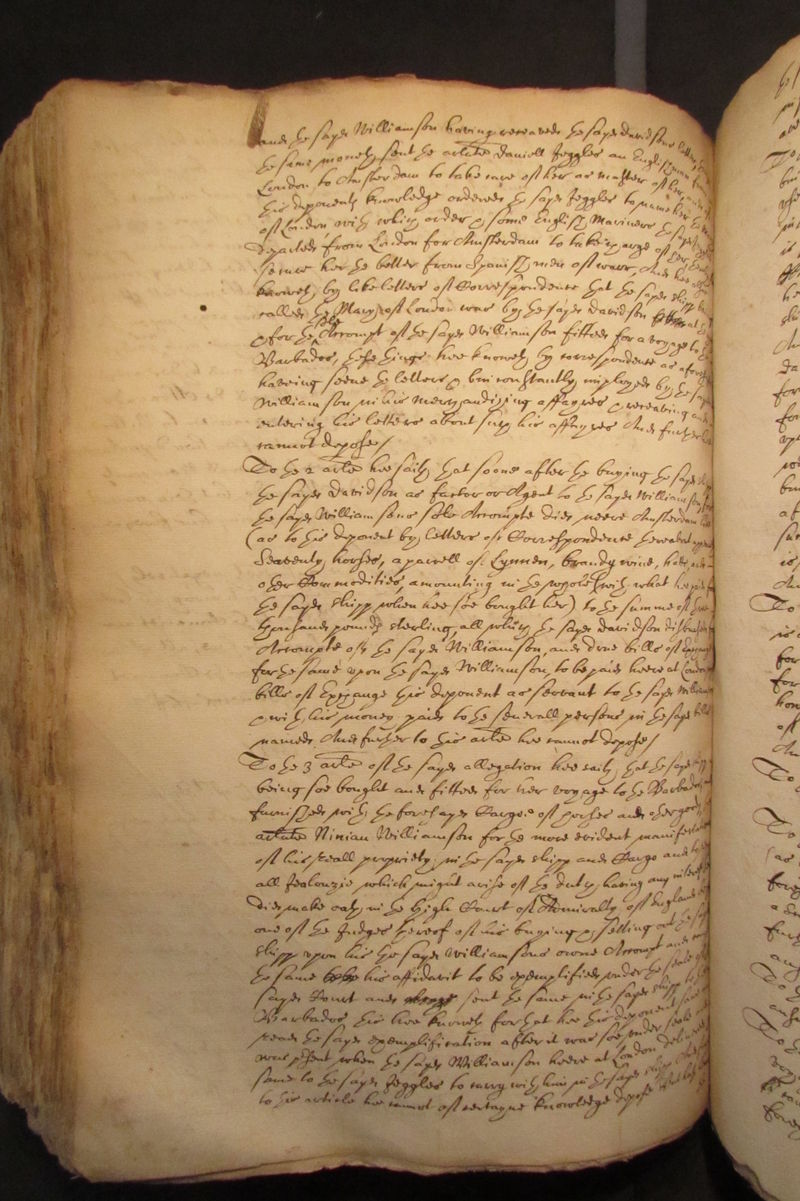 and the sayd Williamson having received the sayd Davidsons letters
the same moneth sent the arlate Daniell Jeggles an Englishman from
London to Amsterdam to take care of her as master of her, and to
his deponents knowledge ordered the sayd Jeggles to name her the
of London with which order & some English Marriners the sayd Jeggles
departed from London for Amsterdam to take charge of her
secure her the better from Spanish men of warr, And hee
knoweth by like letters of Correspondence that the sayd shipp
called the Mary of London was by the sayd Davidson
& for the sole Accompt of the sayd Williamson fitted for a voyage to the
Barbados, these things hee knoweth by correspondence as aforesayd
haveing seene the letters & bin constantly imployed by the sayd
Williamson in his merchandizing affayres & receaving and
entering his letters about such his affayres And further hee
cannot depose/
To the 2 arlate hee saith that soone after the buying the sayd shipp
the sayd Davidson as factor or Agent to the sayd Williamson
the sayd Williamsons sole Accompte did neere Amsterdam
(as to this deponent by letters of Correspondence thereabout
Seaventy horses, a parcell of Lynnen, brandy wine,
other Commodities, amounting in the whole (with what hee paid for
the sayd shipp when hee soe bought her) to the summe of
thousand pounds sterling, all which the sayd Davidson disbursed
Accompte of the sayd Williamson, and drue bills of Exchange
for the same upon the sayd Williamson, to be paid heere at London
bills of Exchange this deponent as servant to the sayd Williamson
& with his money paid to the severall persons in the sayd bills
named. And further to this arlate hee cannot depose/
To the 3 arlate of the sayd allegation hee saith that the sayd shipp
being soe bought and fitted for her voyage to the Barbados
furnished with the foresayd Cargo of horses and other goods
arlate Ninian Williamson for the more evident manifestation
of his reall propriety in the sayd shipp and Cargo and to
all Jealouzie which might arise of the dutch having any interest
did make oath in the High Court of Admiralty of England
one of the Judges thereof of his buying & setting out the sayd
shipp upon his the sayd Williamsons owne Accompt and
the same his affidavit to be exemplified under the seale of
sayd Court and sent the same in the sayd shipp to
Barbados this hee knoweth for that hee this deponent
read the sayd exemplification after it was soe under seale
was present when the sayd Williamson heere at London delivered
same to the sayd Jeggles to carry with him in the sayd shipp
to this article hee cannot of certayne knowledge depose